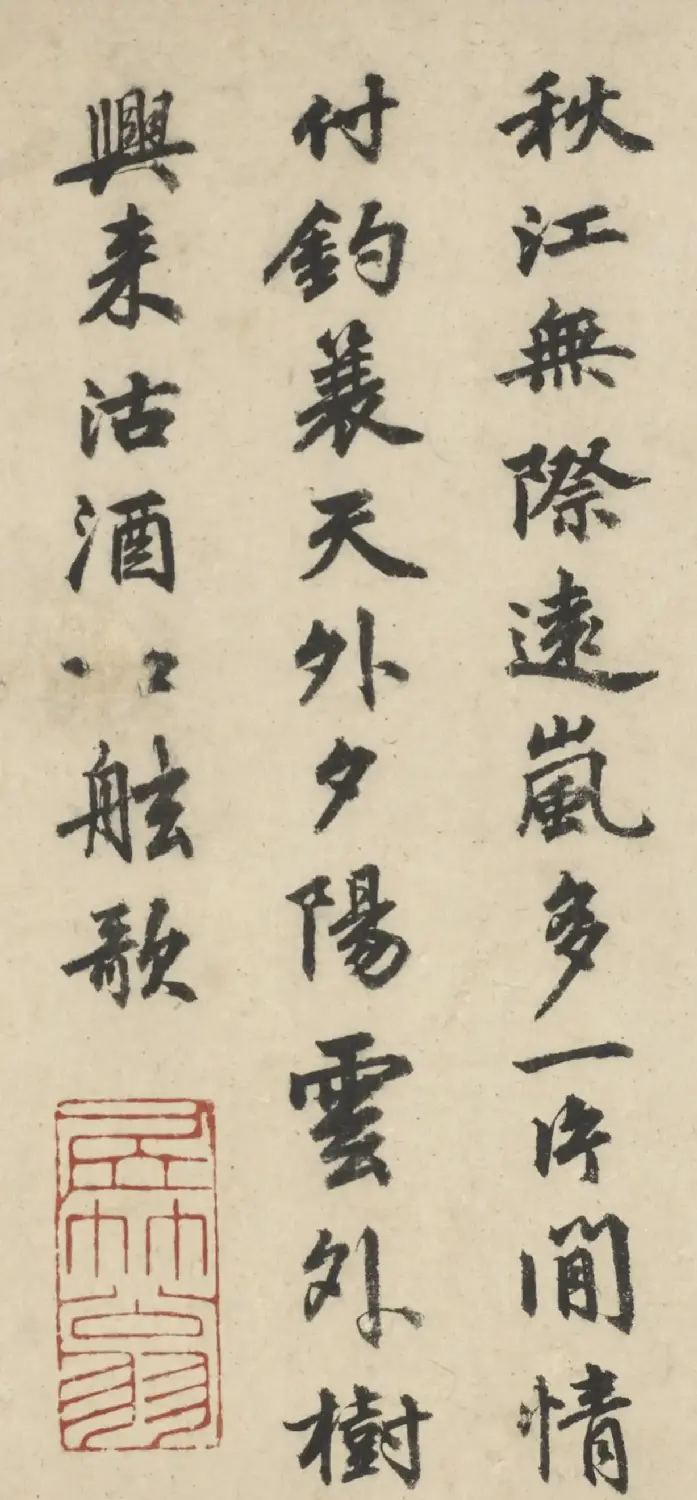 秋江無際遠嵐多一片閒情
付釣蓑天外夕陽雲外樹
興来沽酒以舷歌